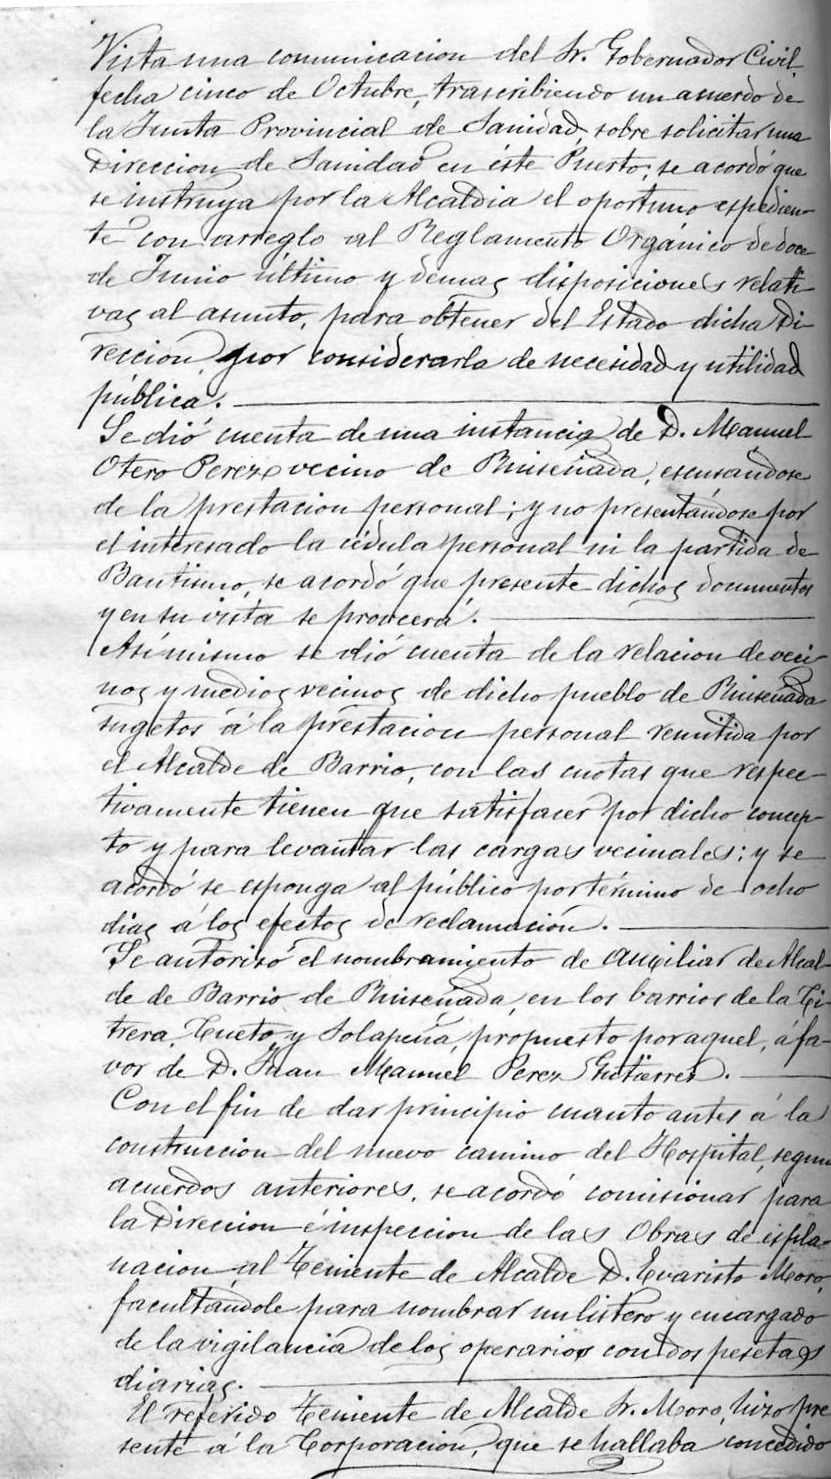 Vista una comunicacion del Sr. Gobernador Civil
fecha cinco de Octubre, trascribiendo un acuerdo de
la Junta Provincial de Sanidad sobre solicitar una
Direccion de Sanidad en éste Puerto; se acordó que
se instruya por la Alcaldia el oportuno espedien-
te con arreglo al Reglamento Orgánico de doce
de Junio último y demas disposiciones relati-
vas al asunto, para obtener del Estado dicha Di-
reccion, por considerarla de necesidad y utilidad
pública.
Se dió cuenta de una instancia de D. Manuel
Otero Perez vecino de Ruiseñada, escusándose
de la prestacion personal; y no presentándose por
el interesado la cédula personal ni la partida de
Bautismo, se acordó que presente dichos documentos
y en su vista se proveerá.
Asímismo se dió cuenta de la relacion de veci-
nos y medios vecinos de dicho pueblo de Ruiseñada
sugetos á la prestacion personal remitida por
el Alcalde de Barrio, con las cuotas que respec-
tivamente tienen que satisfacer por dicho concep-
to y para levantar las cargas vecinales; y se
acordó se esponga al público por término de ocho
dias á los efectos de reclamacion.
Se autorisó el nombramiento de auxiliar de Alcal-
de de Barrio de Ruiseñada, en los barrios de la
trera, Cueto y Solapeña, propuesto por aquel, á fa-
vor de D. Juan Manuel Perez Gutierrez.
Con el fin de dar principio cuanto antes á la
construccion del nuevo camino del Hospital, segun
acuerdos anteriores, se acordó comisionar para
la Direccion é inspeccion de las Obras de espla-
nacion al Teniente de Alcalde D. Evaristo Moro,
facultándole para nombrar un listero y encargado
de la vigilancia de los operarios con dos pesetas
diarias.
El referido Teniente de Alcalde Sr. Moro, hizo pre
sente á la Corporacion, que se hallaba concedido